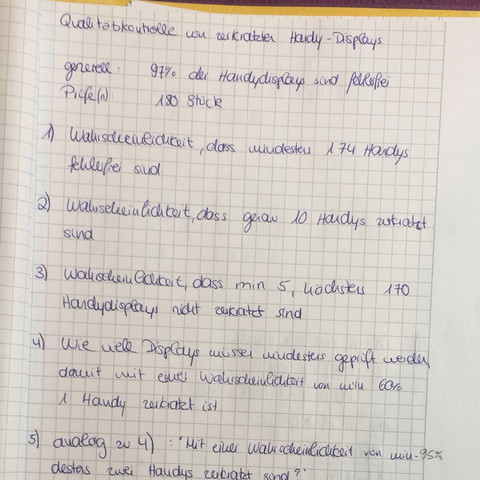 Qualitätskontrolle von zerkratzten Handy-Displays
generell: 97% der Handydisplays sind fehlerfrei
Prüfe(n) 180 Stück
1) Wahrscheinlichkeit, dass mindestens 174 Handys
fehlerfrei sind
2) Wahrscheinlichkeit, dass genau 10 Handys zerkratzt
sind
3) Wahrscheinlichkeit, dass min 5, höchstens 170
Handydisplays nicht zerkratzt sind
4) Wie viele Displays müssen mindestens geprüft werden,
damit mit einer Wahrscheinlichkeit von min 60%
1 Handy zerkratzt ist
5) analog zu 4) : "Mit einer Wahrscheinlichkeit von min. 95%
destens zwei Handys zerkratzt sind?"